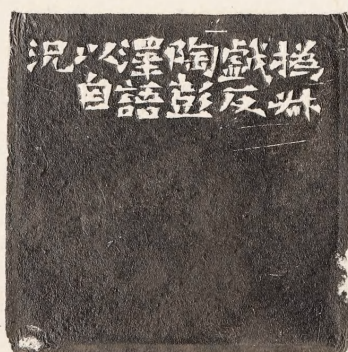 撝叔
戲反
陶彭
澤語
以自
況